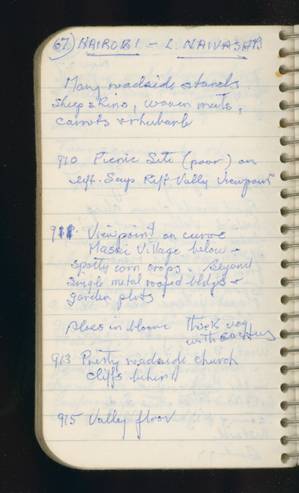 67) NAIROBI - L. NAIVASHA
Many roadside stands
Sheep skins, woven mats,
carrots & rhubarb
910 Picnic Site (poor) on
left. Says Rift Valley Viewpoint
911 Viewpoint on curve
Masai Village below -
spotty corn crops. Beyond
single metal roofed bldgs -
garden plots
Aloes in bloom Thick veg
with cactus
913 Pretty roadside church
cliffs behind
915 Valley floor